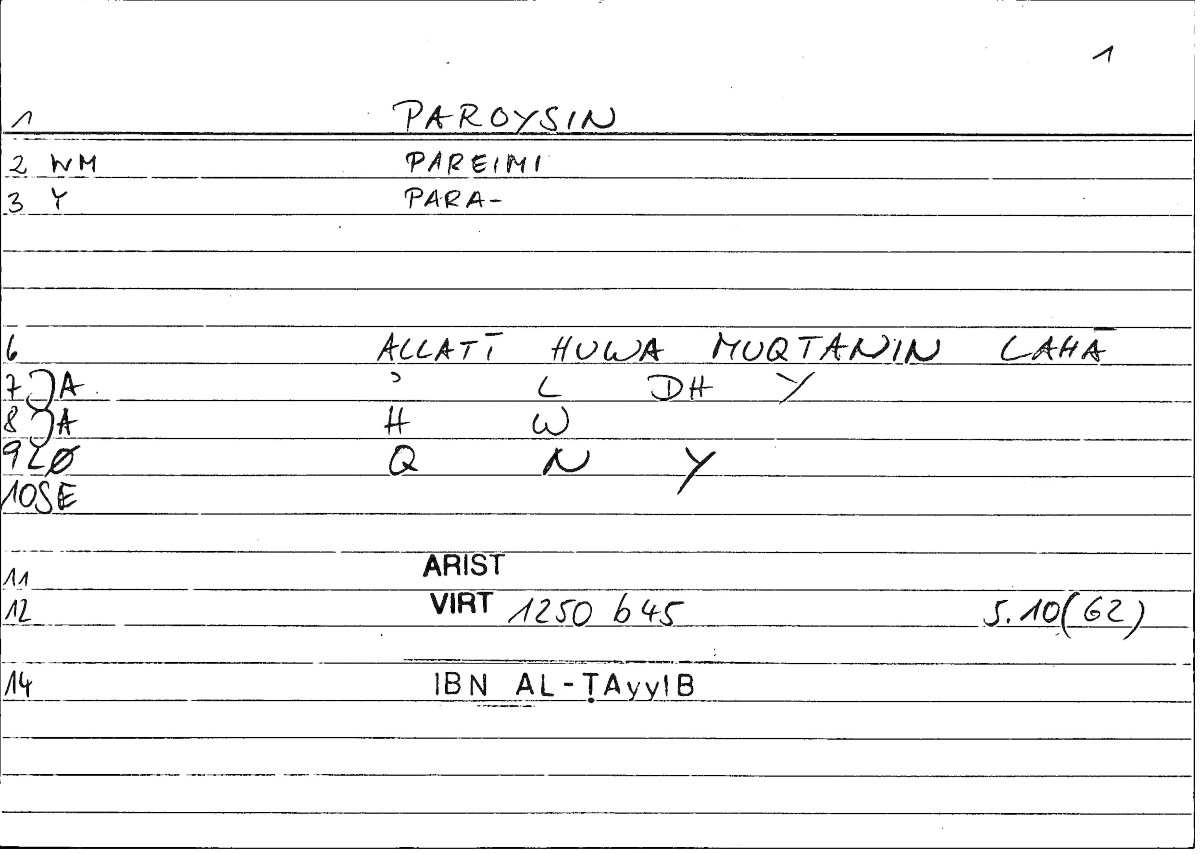 1
1 PAROYSIN
2 WM PAREIMI
3 Y PARA-
6 ALLATĪ HUWA MUQTANIN LAHĀ
7 JA ʾ L DH Y
8 JA H W
9 LØ Q N Y
10 SE
11 ARIST
12 VIRT 1250 b45 S.10(62)
14 IBN AL-ṬAyyIB